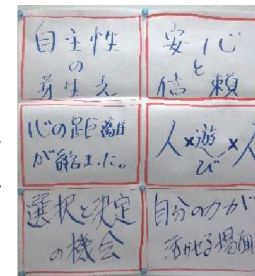 自主性
の
芽生え
安心
と
信頼
心の距離
が縮まった。
人×遊び×人
選択と決定
の機会
自分の力が
活かせる場面